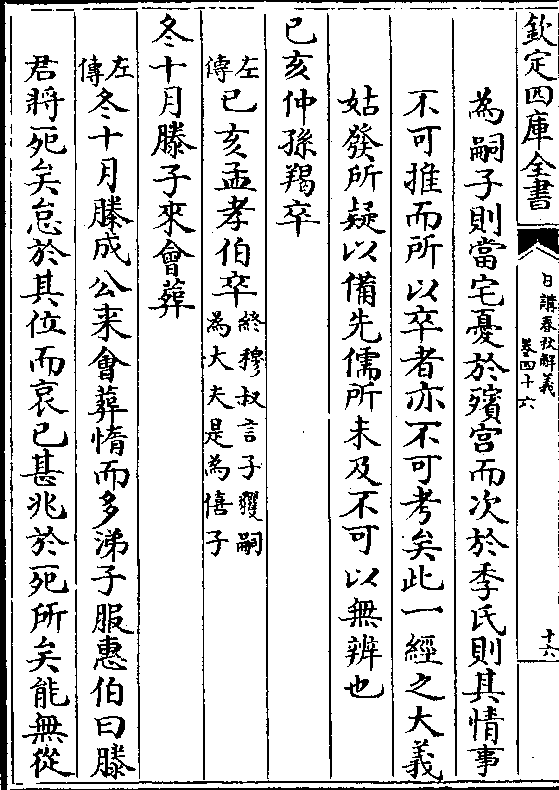 欽定四庫全書
日講春秋解義
卷四十六
十六
為嗣子則當宅憂於殯宮而次於季氏則其情事
不可推而所以卒者亦不可考矣此一經之大義
姑發所疑以備先儒所未及不可以無辨也
己亥仲孫羯卒
左傳己亥孟孝伯卒終穆叔言子貜嗣
為大夫是為僖子
冬十月滕子來會葬
左傳冬十月滕成公来會葬惰而多涕子服惠伯曰滕
君將死矣怠於其位而哀已甚兆於死所矣能無從